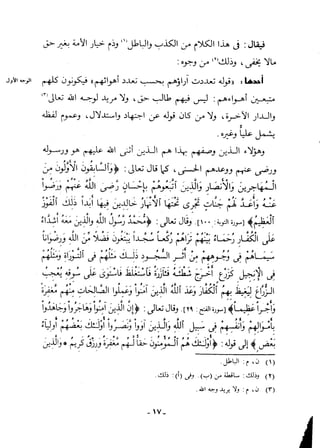 فيقال : في هذا الكلام من الكذب والباطل(١) وذم خيار الأمة بغير حق
ما لا يخفى ، وذلك(٢) من وجوه :
أحدها : قوله : تعددت آراؤهم بحسب تعدد أهوائهم ، فيكون
ليس فيهم طالب حق ولا مريد لوجه الله تعالى(٣)
الوجه الأول
والدار الآخرة ، ولا من كان قوله عن اجتهاد واستدلال ، وعموم لفظه
يشمل عليا وغيره .
وهؤلاء الذين وصفهم بهذا هم الذين أثنى الله عليهم هو ورسوله
ورضي عنهم ووعدهم الحسنى ، كما قال تعالى : ﴿وَالسَّابِقُونَ الْأَوَّلُونَ مِنَ
الْمُهَاجِرِينَ وَالْأَنصَارِ وَالَّذِينَ اتَّبَعُوهُم بِإِحْسَانٍ رَّضِيَ اللَّهُ عَنْهُمْ وَرَضُوا
عَنْهُ وَأَعَدَّ لَهُمْ جَنَّاتٍ تَجْرِي تَحْتَهَا الْأَنْهَارُ خَالِدِينَ فِيهَا أَبَدًا ذَلِكَ الْفَوْزُ
الْعَظِيمُ﴾ [سورة التوبة : ١٠٠] ، وقال تعالى : ﴿مُّحَمَّدٌ رَّسُولُ اللَّهِ وَالَّذِينَ مَعَهُ أَشِدَّاءُ
عَلَى الْكُفَّارِ رُحَمَاءُ بَيْنَهُمْ تَرَاهُمْ رُكَّعًا سُجَّدًا يَبْتَغُونَ فَضْلًا مِّنَ اللَّهِ وَرِضْوَانًا
سِيمَاهُمْ فِي وُجُوهِهِم مِّنْ أَثَرِ السُّجُودِ ذَلِكَ مَثَلُهُمْ فِي التَّوْرَاةِ وَمَثَلُهُمْ
فِي الْإِنجِيلِ كَزَرْعٍ أَخْرَجَ شَطْأَهُ فَآزَرَهُ فَاسْتَغْلَظَ فَاسْتَوَى عَلَى سُوقِهِ يُعْجِبُ
الزُّرَّاعَ لِيَغِيظَ بِهِمُ الْكُفَّارَ وَعَدَ اللَّهُ الَّذِينَ آمَنُوا وَعَمِلُوا الصَّالِحَاتِ مِنْهُم مَّغْفِرَةً
وَأَجْرًا عَظِيمًا﴾ [سورة الفتح : ٢٩] وقال تعالى : ﴿إِنَّ الَّذِينَ آمَنُوا وَهَاجَرُوا وَجَاهَدُوا
بِأَمْوَالِهِمْ وَأَنفُسِهِمْ فِي سَبِيلِ اللَّهِ وَالَّذِينَ آوَوا وَّنَصَرُوا أُولَئِكَ بَعْضُهُمْ أَوْلِيَاءُ
بَعْضٍ﴾ إلى قوله : ﴿أُولَئِكَ هُمُ الْمُؤْمِنُونَ حَقًّا لَّهُم مَّغْفِرَةٌ وَرِزْقٌ كَرِيمٌ * وَالَّذِينَ
(١) ن ، م : الباطل .
(٢) وذلك : ساقطة من (ب) . وفي (أ) : ذلك .
(٣) ن ، م : ولا يريد وجه الله .
- ١٧ -